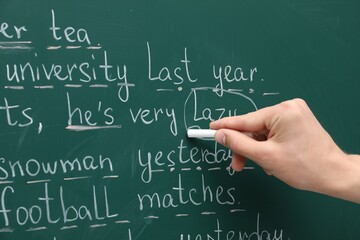 er tea
university Last year.
ts, he's very Lazy
snowman yesterday
football matches.
yesterday